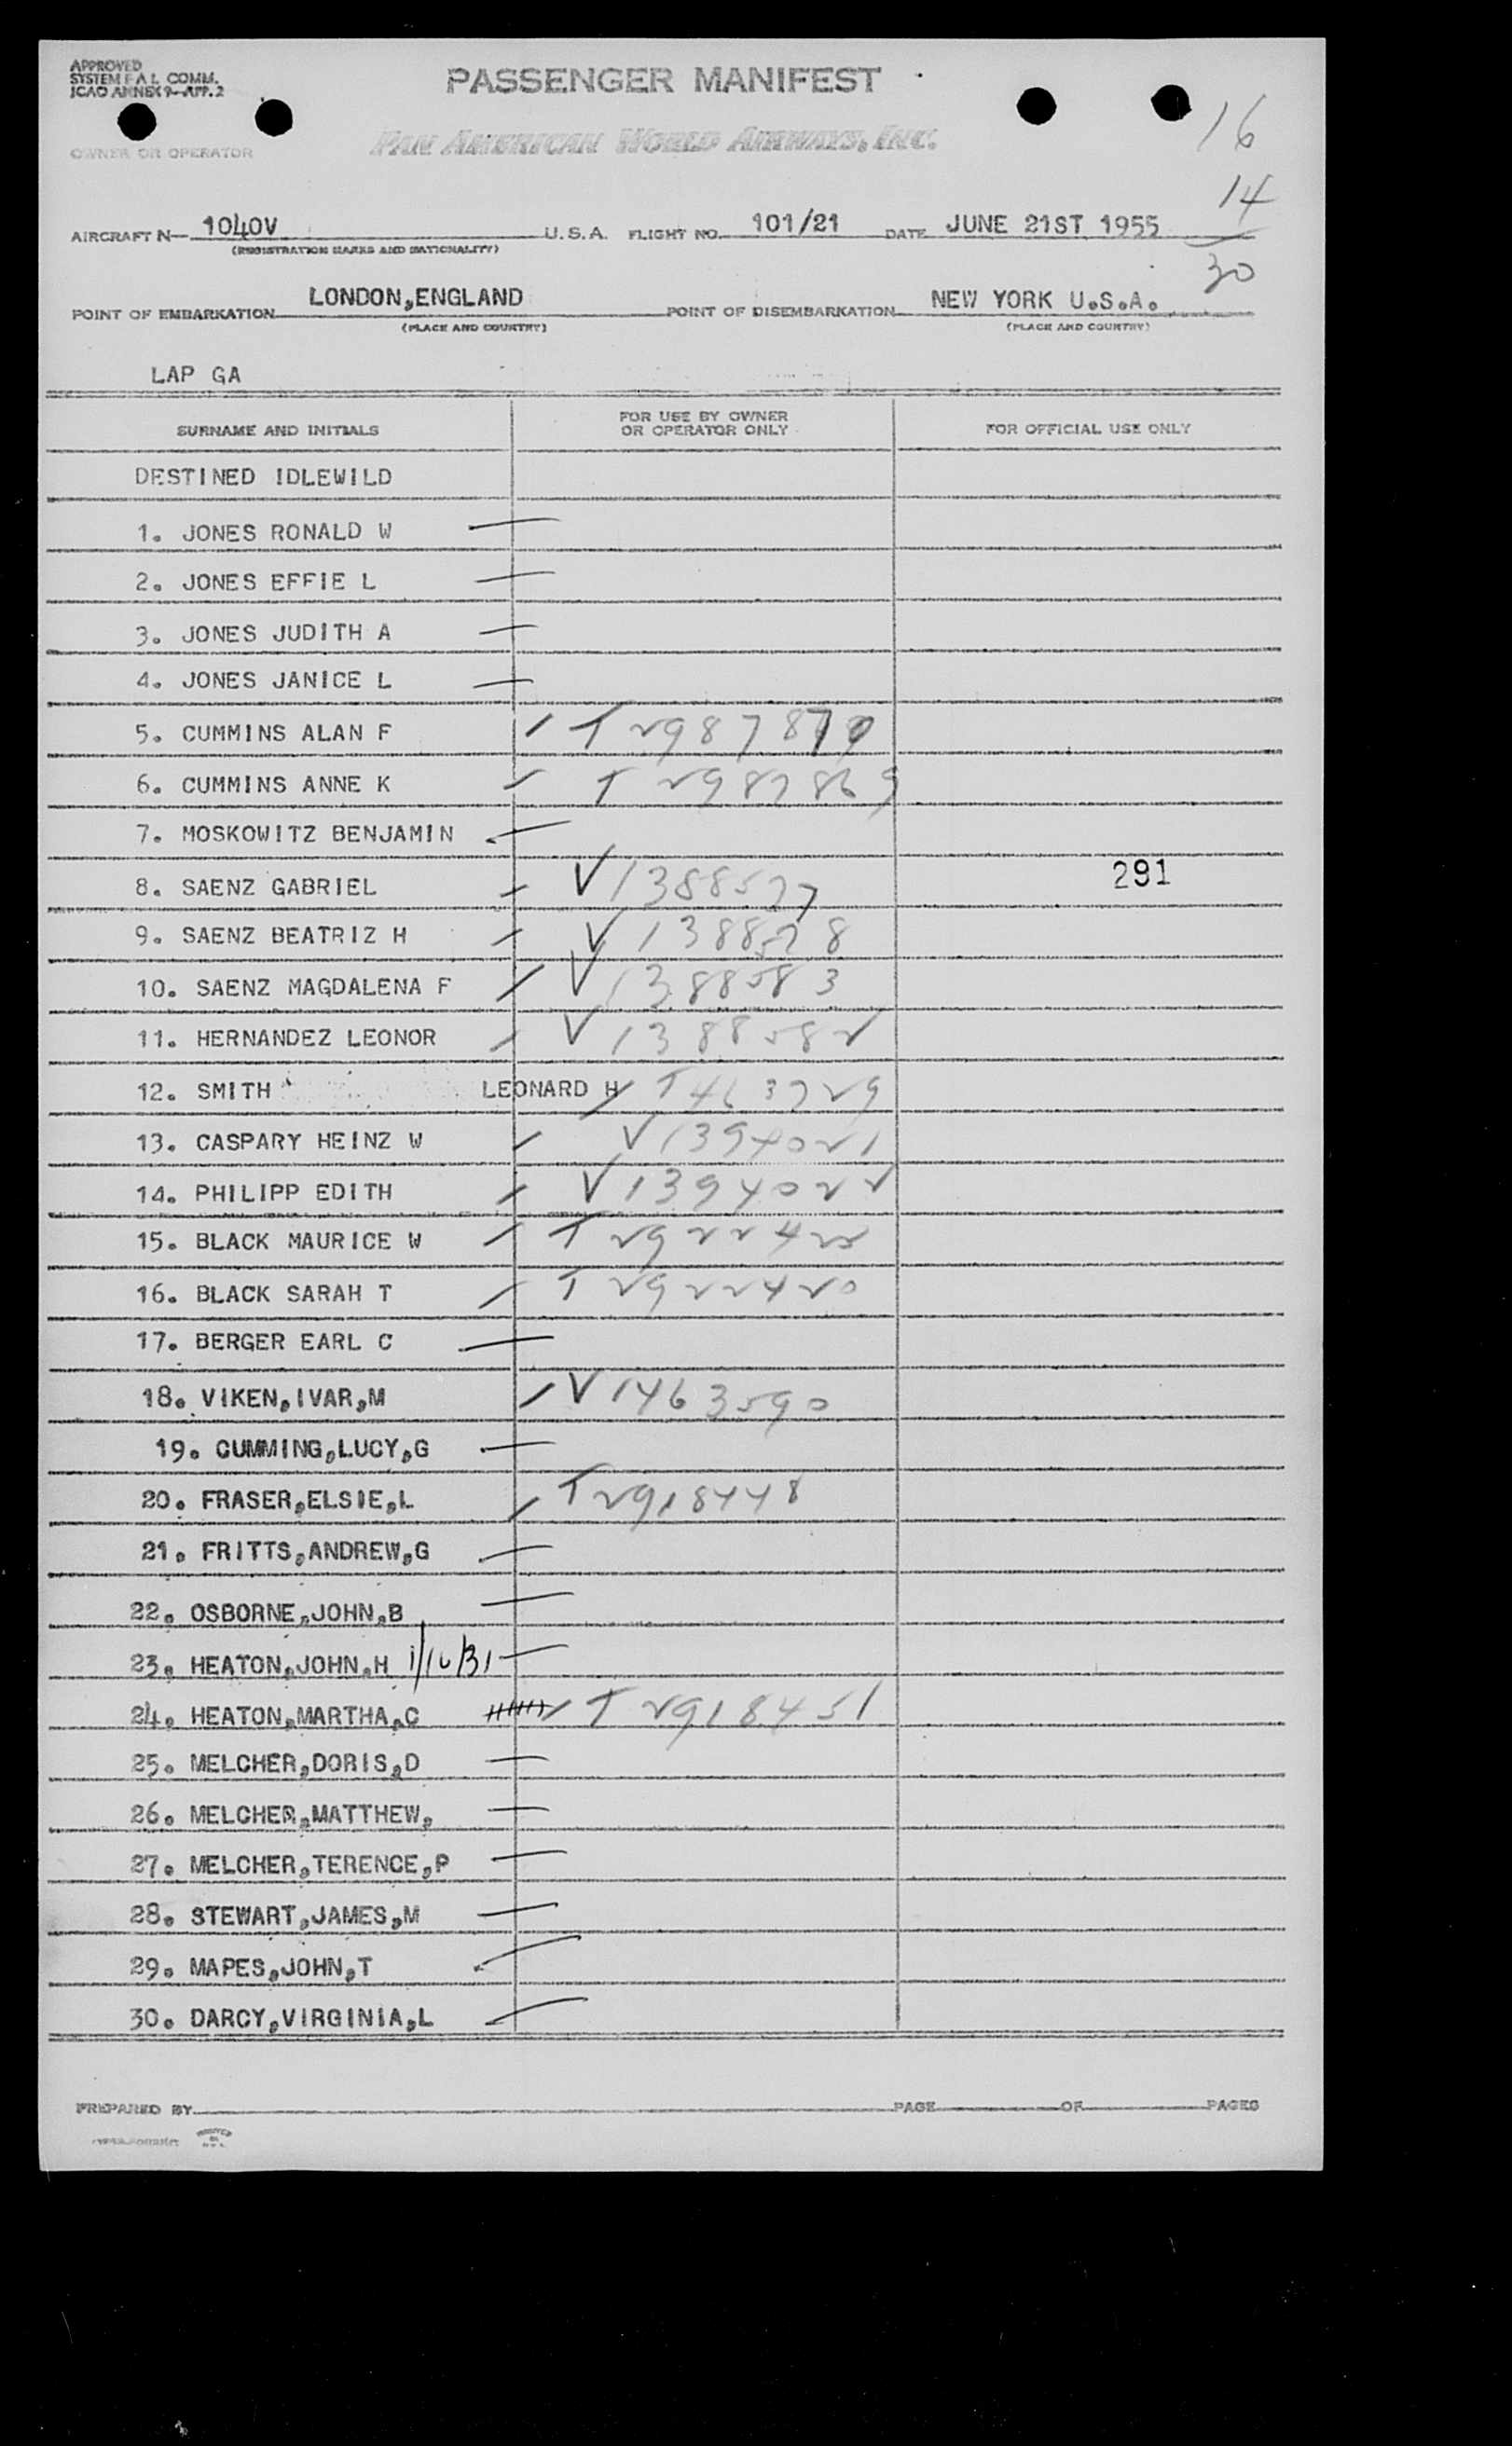 APPROVED
SYSTEM F A L COMM.
ICAO ANNEX 9-APP. 2
PASSENGER MANIFEST
16
OWNER OR OPERATOR
PAN AMERICAN WORLD AIRWAYS, INC.
14
AIRCRAFT N- 1040V U.S.A. FLIGHT NO. 101/21 DATE JUNE 21ST 1955
(REGISTRATION MARKS AND NATIONALITY)
30
POINT OF EMBARKATION LONDON,ENGLAND POINT OF DISEMBARKATION NEW YORK U.S.A.
(PLACE AND COUNTRY) (PLACE AND COUNTRY)
LAP GA
SURNAME AND INITIALS FOR USE BY OWNER OR OPERATOR ONLY FOR OFFICIAL USE ONLY
DESTINED IDLEWILD
1. JONES RONALD W
2. JONES EFFIE L
3. JONES JUDITH A
4. JONES JANICE L
5. CUMMINS ALAN F
6. CUMMINS ANNE K T 2987869
7. MOSKOWITZ BENJAMIN
8. SAENZ GABRIEL V 1388577 291
9. SAENZ BEATRIZ H V 1388578
10. SAENZ MAGDALENA F V 1388583
11. HERNANDEZ LEONOR V 1388582
12. SMITH LEONARD H T 463729
13. CASPARY HEINZ W V 1394021
14. PHILIPP EDITH V 1394022
15. BLACK MAURICE W
16. BLACK SARAH T T 2922420
17. BERGER EARL C
18. VIKEN,IVAR,M V 1463590
19. CUMMING,LUCY,G
20. FRASER,ELSIE,L T 2918448
21. FRITTS,ANDREW,G
22. OSBORNE,JOHN,B
23. HEATON,JOHN,H 1/16/31
24. HEATON,MARTHA,C T 2918451
25. MELCHER,DORIS,D
26. MELCHER,MATTHEW,
27. MELCHER,TERENCE,P
28. STEWART,JAMES,M
29. MAPES,JOHN,T
30. DARCY,VIRGINIA,L
PREPARED BY PAGE OF PAGES